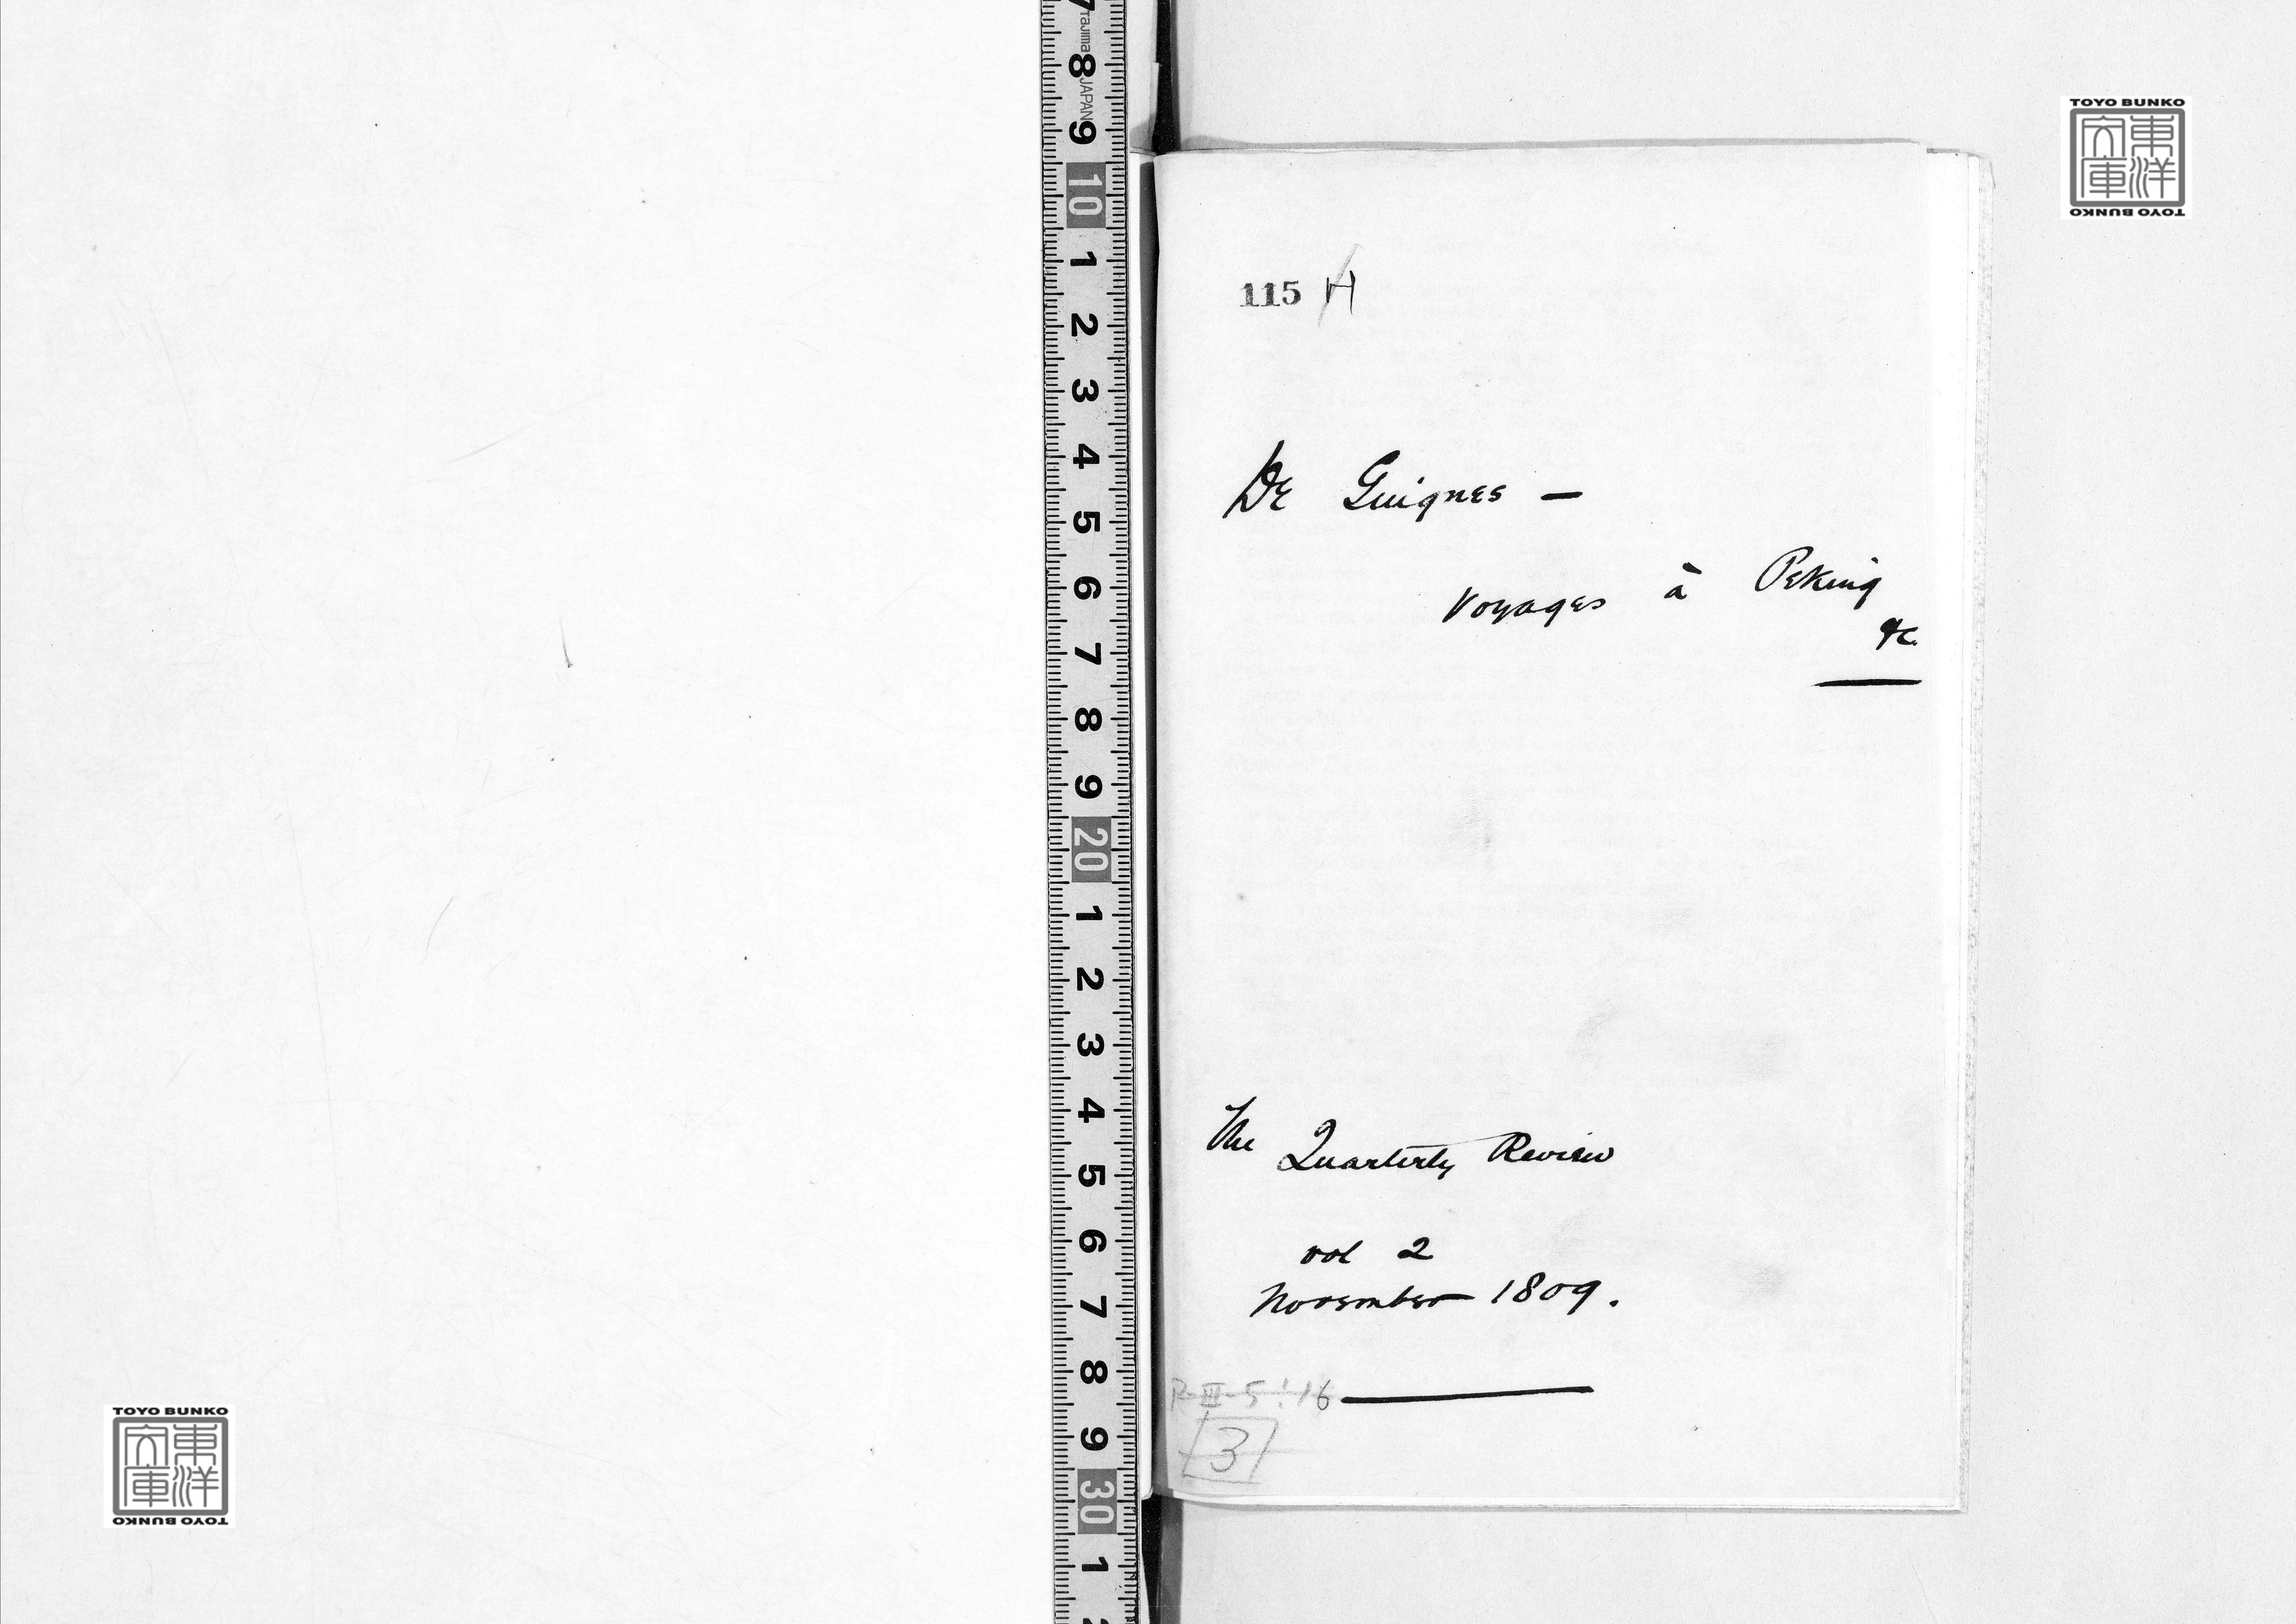 7
Tajima
8
JAPAN
9
10
1
2
3
4
5
6
7
8
9
20
1
2
3
4
5
6
7
8
9
30
1
115 H
De Guignes —
Voyages à Peking
&c.
The Quarterly Review
vol 2
November 1809.
P-III-5:16
3
TOYO BUNKO
東洋
文庫
TOYO BUNKO
TOYO BUNKO
東洋
文庫
TOYO BUNKO